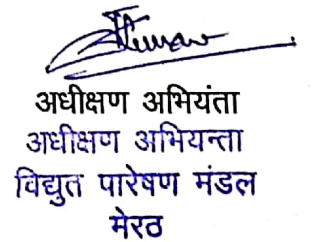 अधीक्षण अभियंता
अधीक्षण अभियन्ता
विद्युत पारेषण मंडल
मेरठ